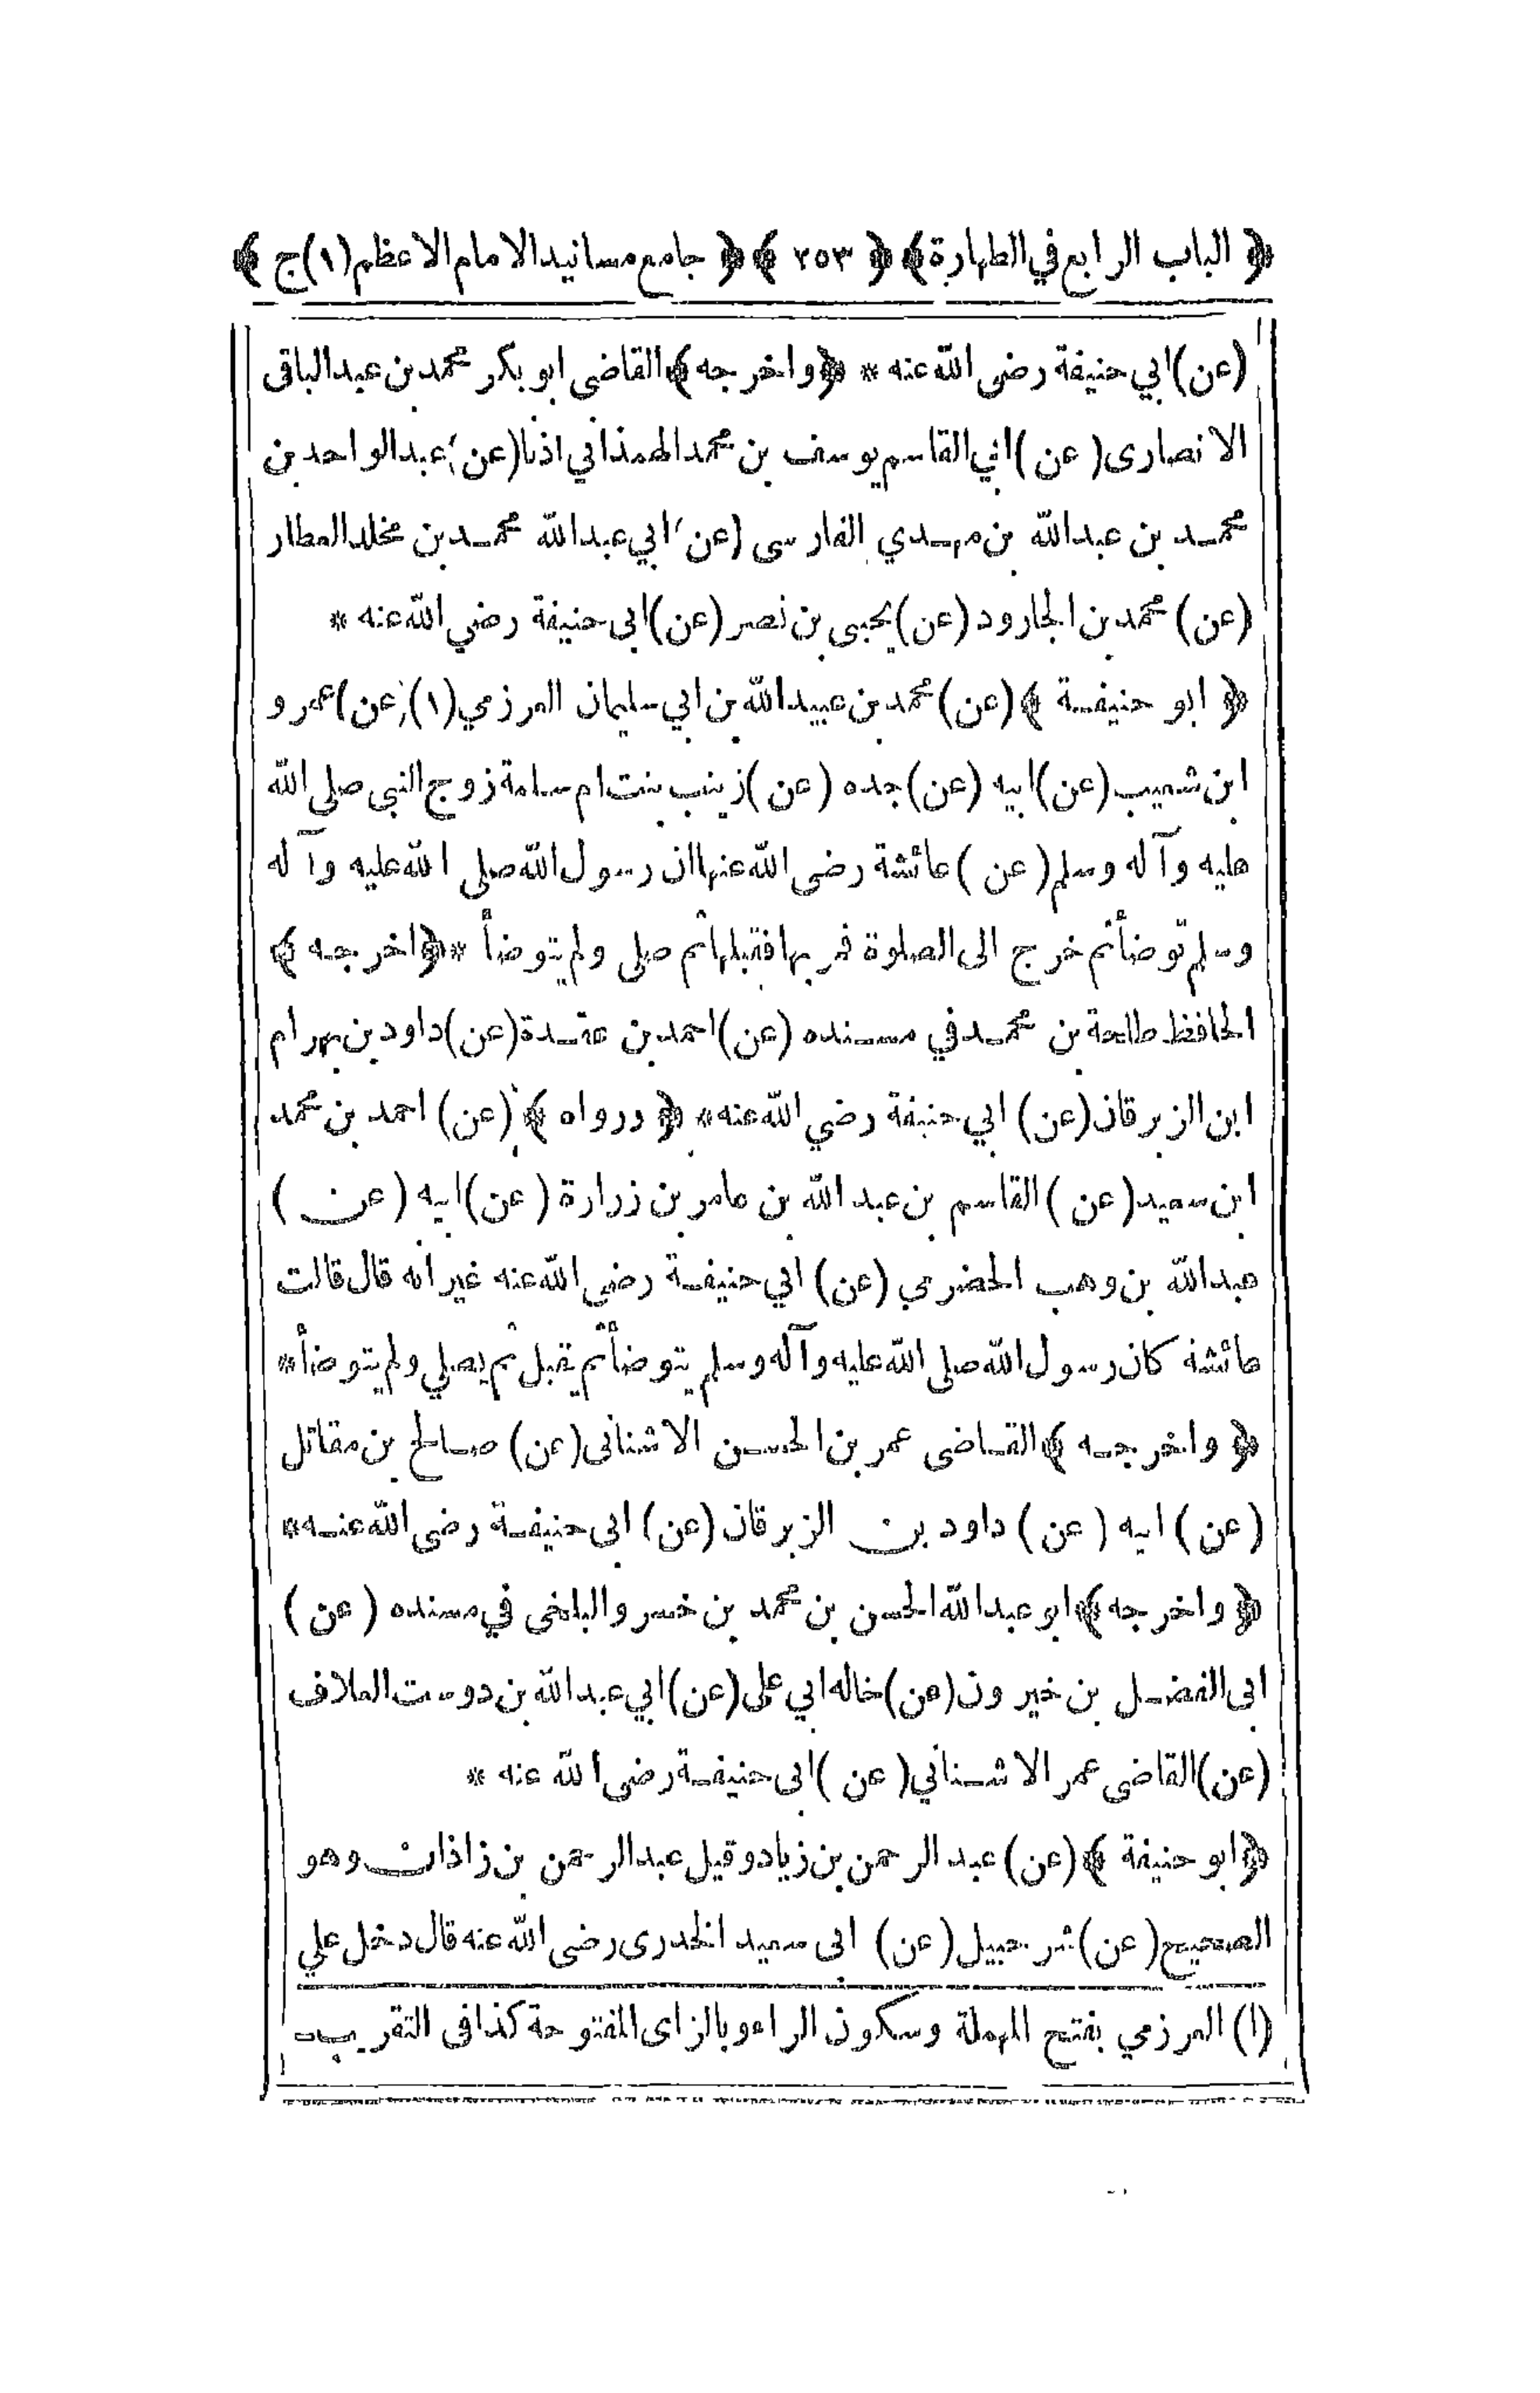 ﴿ الباب الرابع في الطهارة ﴾ ﴿ ٢٥٣ ﴾ ﴿ جامع مسانيد الامام الاعظم (١) ج ﴾
(عن) ابي حنيفة رضى الله عنه * ﴿ واخرجه ﴾ القاضى ابو بكر محمد بن عبد الباقى
الانصارى (عن) ابي القاسم يوسف بن محمد الهمذاني اذنا (عن) عبد الواحد بن
محمد بن عبد الله بن مهدي الفارسى (عن) ابي عبد الله محمد بن مخلد العطار
(عن) محمد بن الجارود (عن) يحيى بن نصر (عن) ابى حنيفة رضي الله عنه *
﴿ ابو حنيفة ﴾ (عن) محمد بن عبيد الله بن ابي سليمان العرزمي (١) (عن) عمرو
ابن شعيب (عن) ابيه (عن) جده (عن) زينب بنت ام سلمة زوج النبي صلى الله
عليه وآله وسلم (عن) عائشة رضى الله عنها ان رسول الله صلى الله عليه وآله
وسلم توضأ ثم خرج الى الصلوة فمر بها فقبلها ثم صلى ولم يتوضأ * ﴿ اخرجه ﴾
الحافظ طلحة بن محمد في مسنده (عن) احمد بن عقدة (عن) داود بن بهرام
ابن الزبرقان (عن) ابي حنيفة رضي الله عنه * ﴿ ورواه ﴾ (عن) احمد بن محمد
ابن سعيد (عن) القاسم بن عبد الله بن عامر بن زرارة (عن) ابيه (عن)
عبد الله بن وهب الحضرمي (عن) ابي حنيفة رضي الله عنه غير انه قال قالت
عائشة كان رسول الله صلى الله عليه وآله وسلم يتوضأ ثم يقبل ثم يصلي ولم يتوضأ *
﴿ واخرجه ﴾ القاضى عمر بن الحسن الاشنانى (عن) صالح بن مقاتل
(عن) ابيه (عن) داود بن الزبرقان (عن) ابى حنيفة رضى الله عنه *
﴿ واخرجه ﴾ ابو عبد الله الحسن بن محمد بن خسرو البلخى في مسنده (عن)
ابى الفضل بن خيرون (عن) خاله ابي على (عن) ابي عبد الله بن دوست العلاف
(عن) القاضى عمر الاشناني (عن) ابى حنيفة رضى الله عنه *
﴿ ابو حنيفة ﴾ (عن) عبد الرحمن بن زياد وقيل عبد الرحمن بن زاذان وهو
الصحيح (عن) شرحبيل (عن) ابى سعيد الخدرى رضى الله عنه قال دخل علي
(١) العرزمي بفتح المهملة وسكون الراء وبالزاى المفتوحة كذا فى التقريب